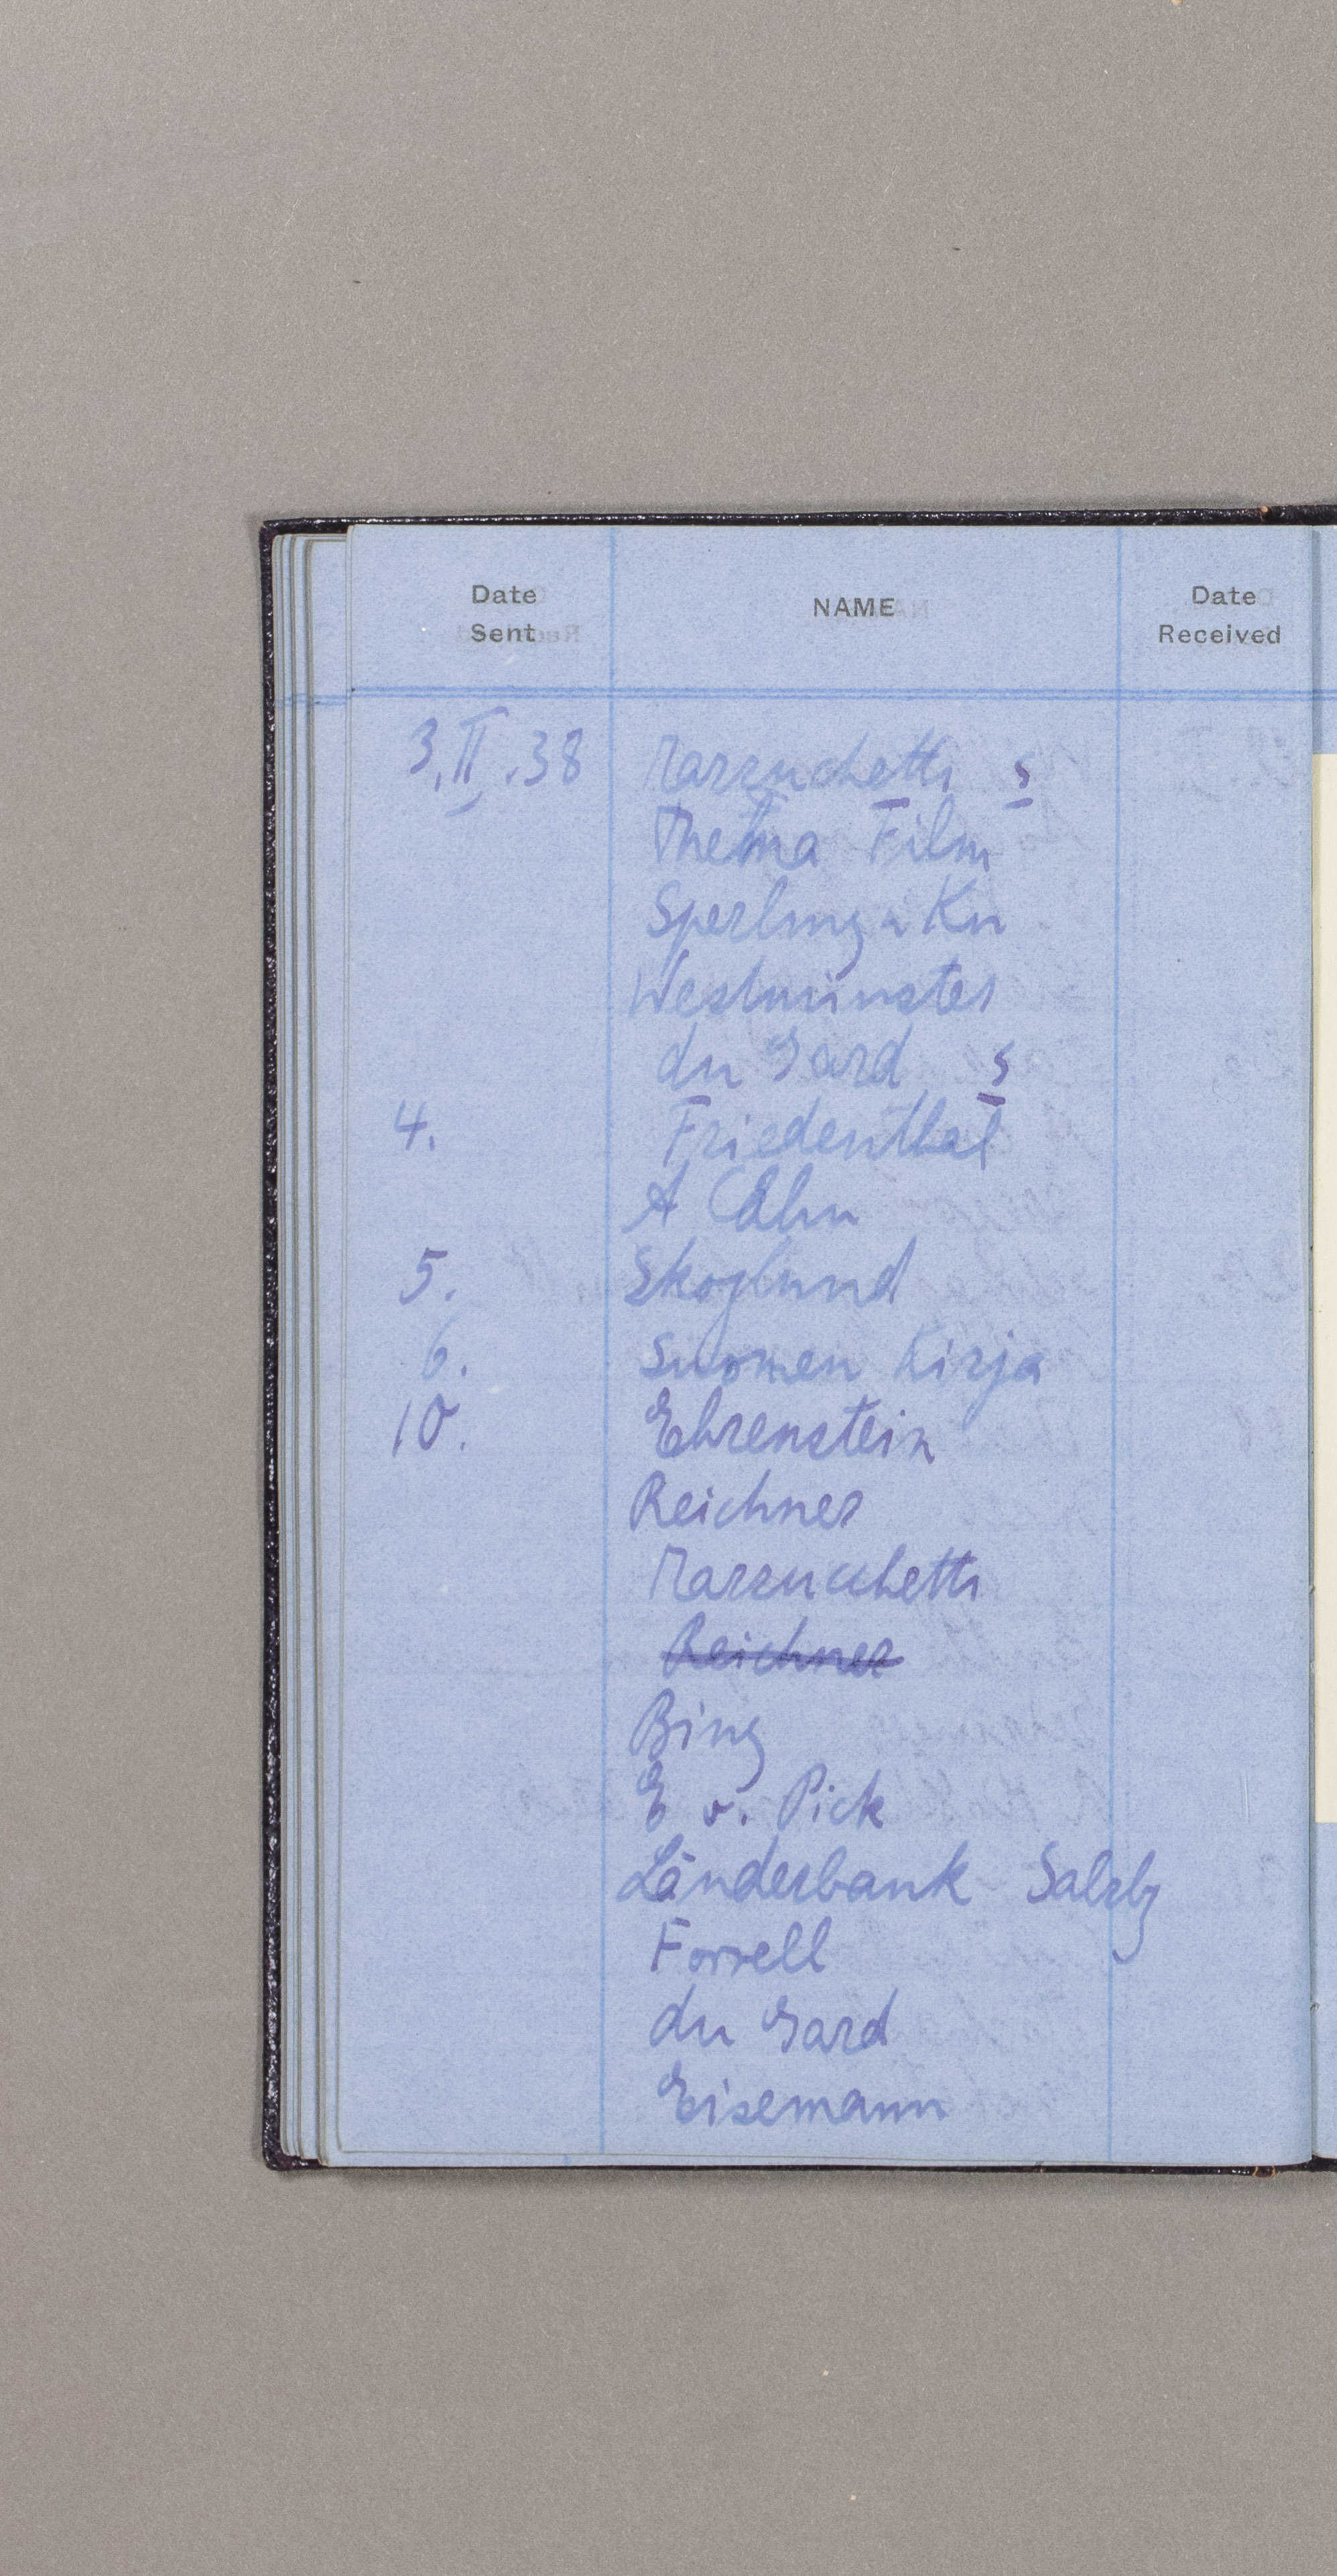 Date Sent NAME Date Received
3.II.38 Mazzuchetti s
Thema Film
Sperling u Ku
Westminster
du Gard s
4. Friedenthal
A
5. Skoglund
6. Suomen Kirja
10. Ehrenstein
Reichner
Mazzucchetti
Reichner
Bing
E v. Pick
Länderbank Salzbg
Forrell
du Gard
Eisemann